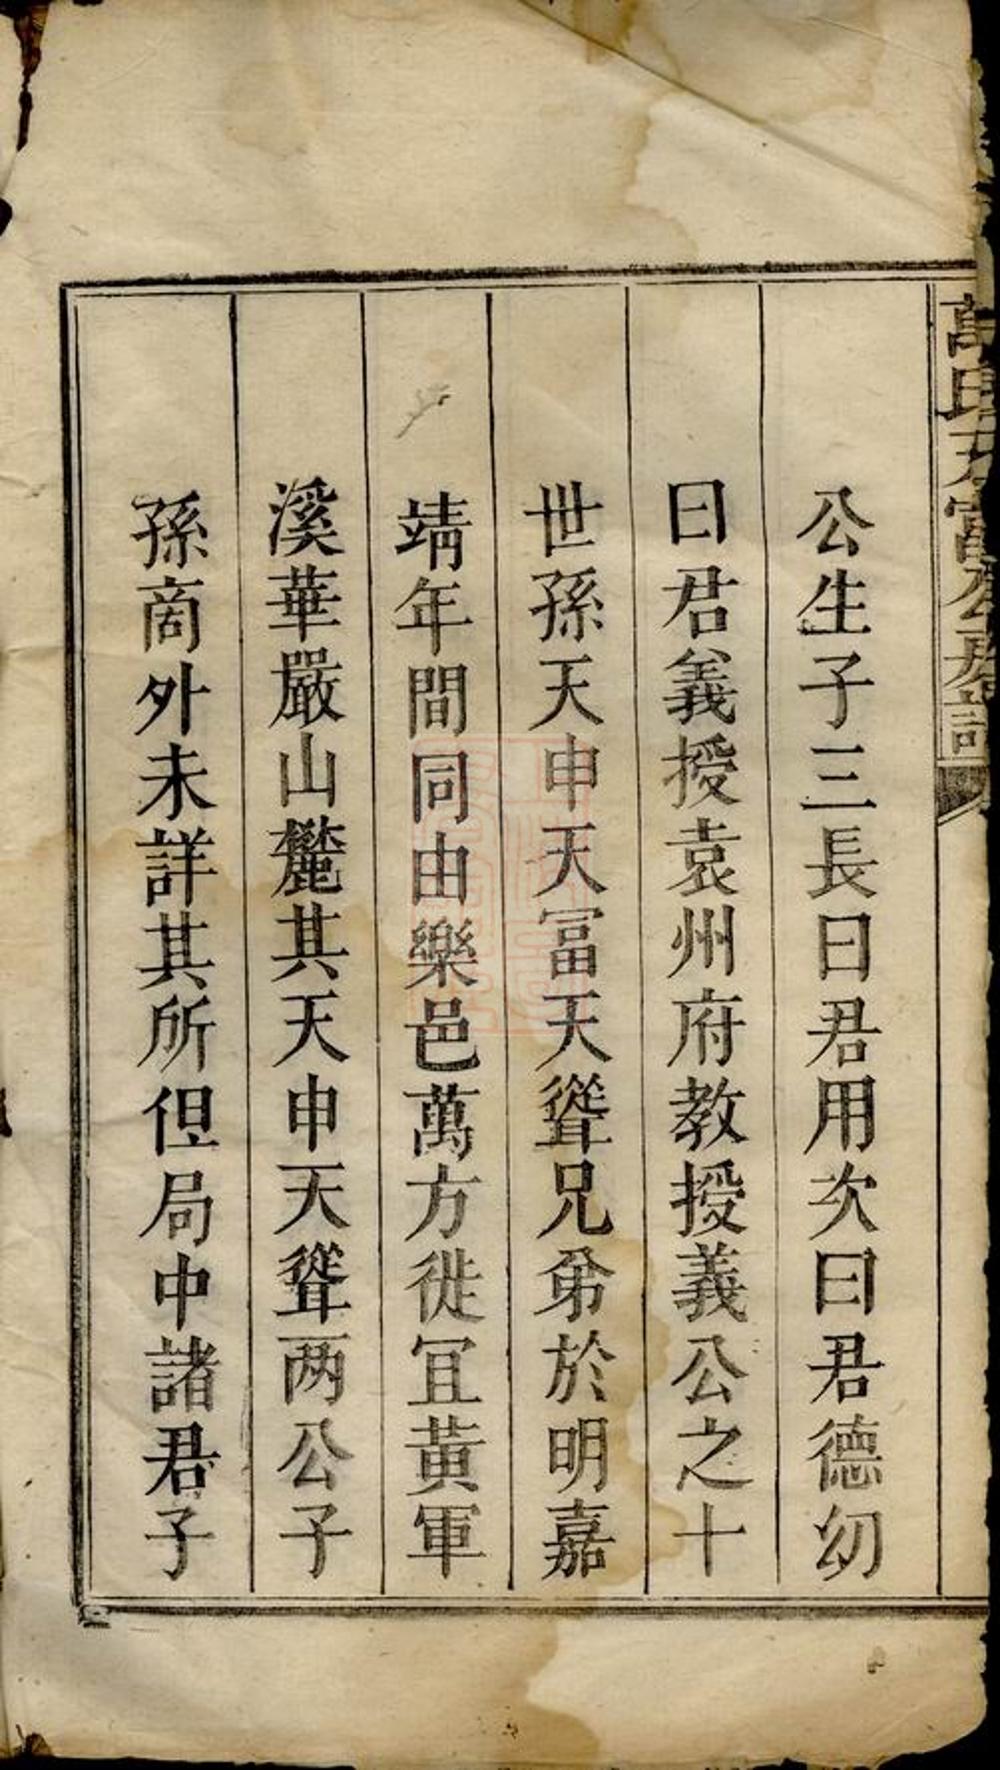 萬氏天富公房譜
公生子三長曰君用次曰君德幼
曰君義授袁州府教授義公之十
世孫天申天冨天聳兄弟於明嘉
靖年間同由樂邑萬方徙冝黃軍
溪華嚴山麓其天申天聳两公子
孫啇外未詳其所但局中諸君子